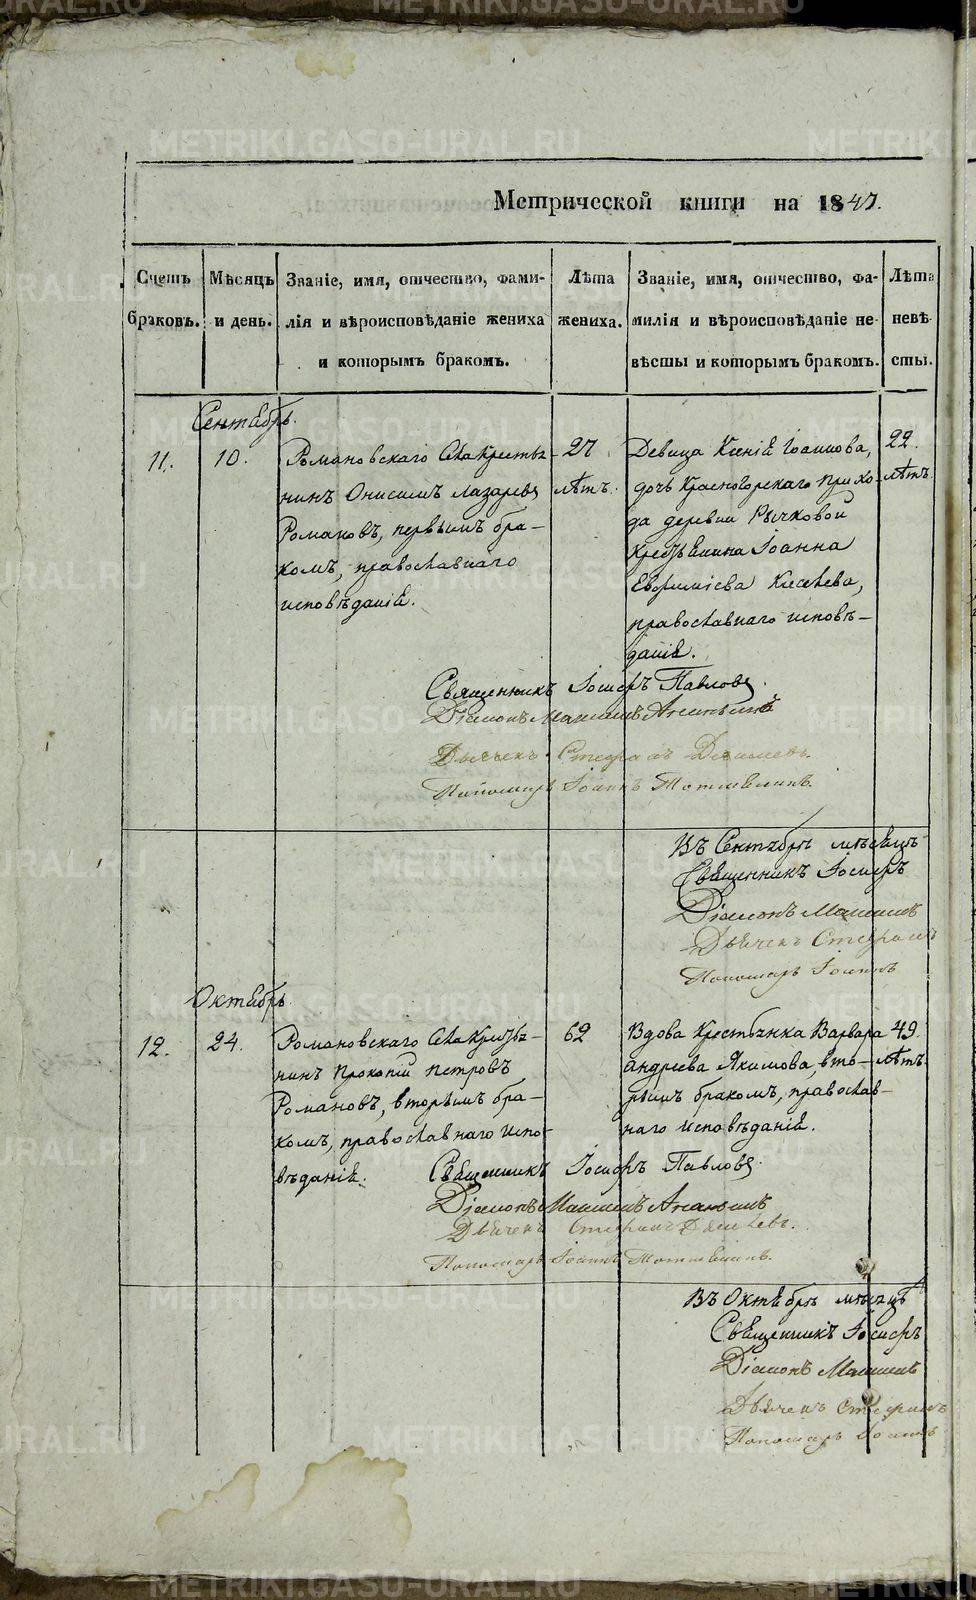 Метрической книги на 1847.
Счетъ браковъ.
Мѣсяцъ и день.
Званіе, имя, отчество, фами-
лія и вѣроисповѣданіе жениха
и которымъ бракомъ.
Лѣта
жениха.
Званіе, имя, отчество, фа-
милія и вѣроисповѣданіе не-
вѣсты и которымъ бракомъ.
Лѣта
невѣ-
сты.
Сентябрь.
11.
10.
Романовскаго села крестья-
нинъ Онисимъ Лазаревъ
Романовъ, первымъ бра-
комъ, православнаго
исповѣданія.
27
лѣтъ.
Девица Ксенія Іоаннова,
дочь Красногорскаго прихо-
да деревни Рычковой
крестьянина Іоанна
Евфиміева Киселева,
православнаго исповѣ-
данія.
22
лѣтъ.
Священникъ Іосифъ Павловъ.
Діаконъ Максимъ
Дьячекъ Стефанъ
Пономарь Іоаннъ
Въ Сентябрѣ мѣсяцѣ
Священникъ Іосифъ
Діаконъ Максимъ
Дьячекъ Стефанъ
Пономарь Іоаннъ
Октябрь.
12.
24.
Романовскаго села крестья-
нинъ Прокопій Петровъ
Романовъ, вторымъ бра-
комъ, православнаго испо-
вѣданія.
62
Вдова крестьянка Варвара
Андреева Якимова, вто-
рымъ бракомъ, православ-
наго исповѣданія.
49.
лѣтъ
Священникъ Іосифъ Павловъ.
Діаконъ Максимъ
Дьячекъ Стефанъ
Пономарь Іоаннъ
Въ Октябрѣ мѣсяцѣ
Священникъ Іосифъ
Діаконъ Максимъ
Дьячекъ Стефанъ
Пономарь Іоаннъ
METRIKI.GASO-URAL.RU